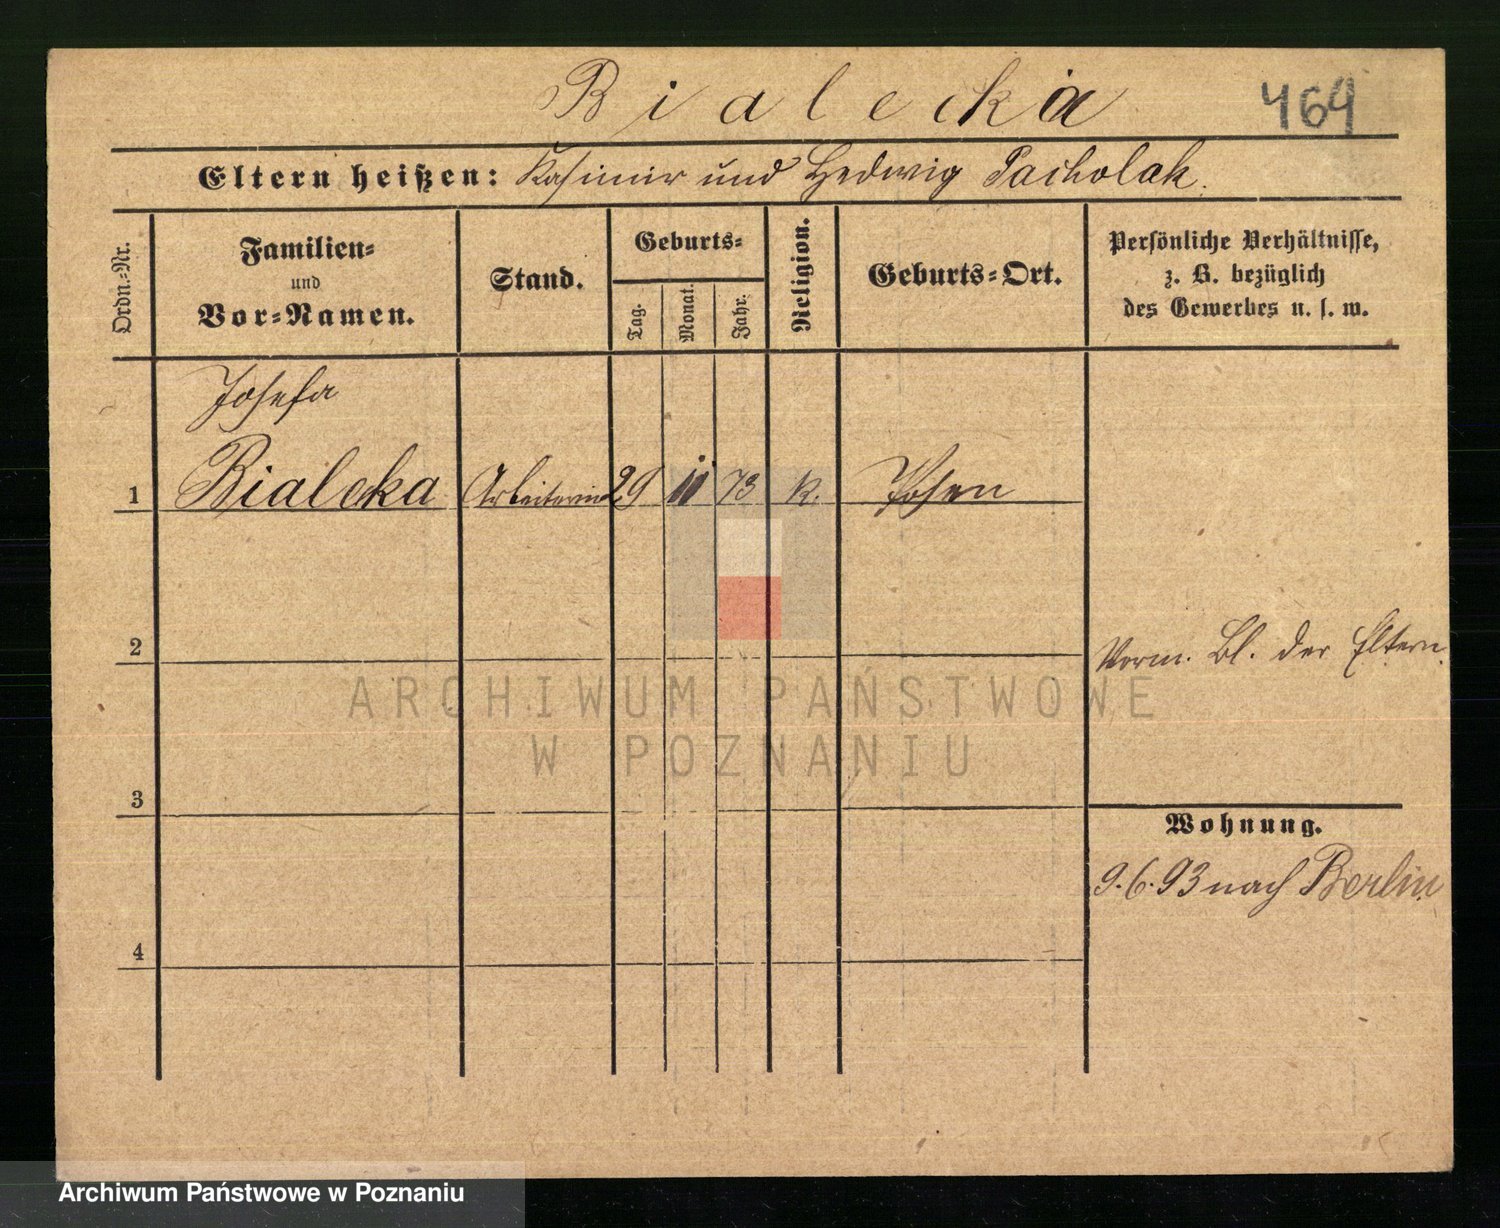 Bialecka
464
Eltern heißen: Kasimir und Hedwig Pacholak.
Ordn.-Nr.
Familien-
und
Vor-Namen.
Stand.
Geburts-
Tag.
Monat.
Jahr.
Religion.
Geburts-Ort.
Persönliche Verhältnisse,
z. B. bezüglich
des Gewerbes u. s. w.
Josefa
1 Bialecka Arbeiterin 29 11 73 k. Posen
2
Vorm. Bl. der Eltern.
3
Wohnung.
9.6.93 nach Berlin.
4
ARCHIWUM PAŃSTWOWE
W POZNANIU
Archiwum Państwowe w Poznaniu